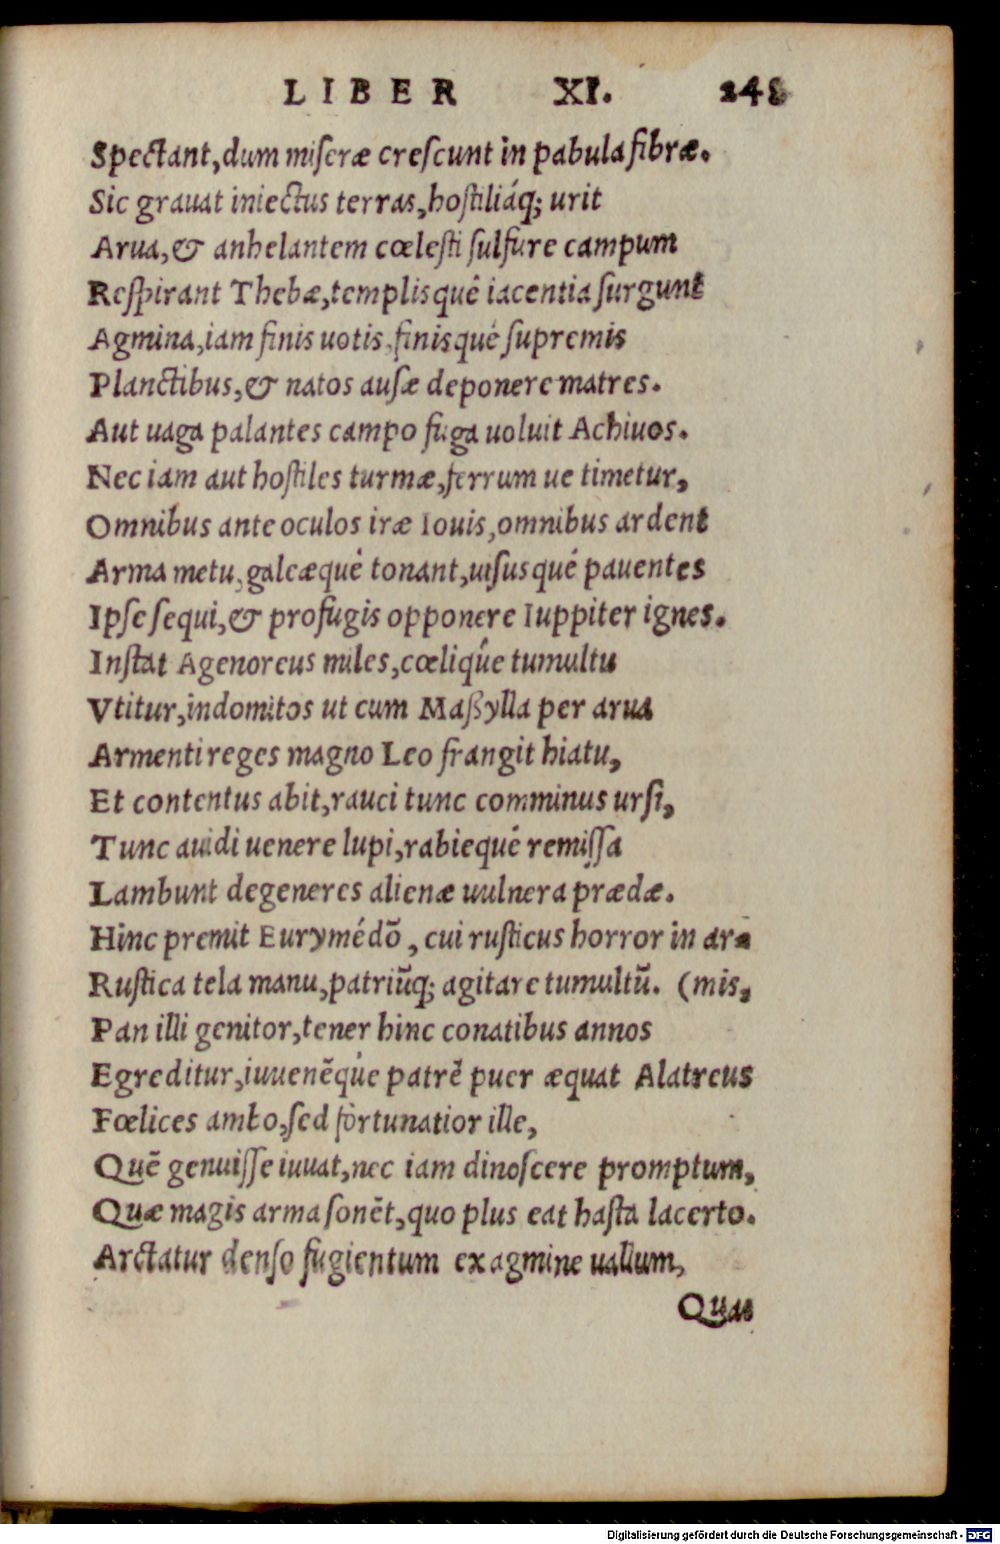 LIBER XI. 248
Spectant, dum miseræ crescunt in pabula fibræ.
Sic grauat iniectus terras, hostiliáq; urit
Arua, & anhelantem cœlesti sulfure campum
Respirant Thebæ, templisquè iacentia surgunt
Agmina, iam finis uotis, finisqué supremis
Planctibus, & natos ausæ deponere matres.
Aut uaga palantes campo fuga uoluit Achiuos.
Nec iam aut hostiles turmæ, ferrum ue timetur,
Omnibus ante oculos iræ Iouis, omnibus ardent
Arma metu, galeæqué tonant, uisusqué pauentes
Ipse sequi, & profugis opponere Iuppiter ignes.
Instat Agenoreus miles, cœliqúe tumultu
Vtitur, indomitos ut cum Maßylla per arua
Armenti reges magno Leo frangit hiatu,
Et contentus abit, rauci tunc comminus ursi,
Tunc auidi uenere lupi, rabiequé remissa
Lambunt degeneres alienæ uulnera prædæ.
Hinc premit Eurymédõ, cui rusticus horror in ar-
Rustica tela manu, patriũq; agitare tumultũ. (mis,
Pan illi genitor, tener hinc conatibus annos
Egreditur, iuuenẽqúe patrẽ puer æquat Alatreus
Fœlices ambo, sed fortunatior ille,
Quẽ genuisse iuuat, nec iam dinoscere promptum,
Quæ magis arma sonẽt, quo plus eat hasta lacerto.
Arctatur denso fugientum ex agmine uallum,
Quas
Digitalisierung gefördert durch die Deutsche Forschungsgemeinschaft - DFG